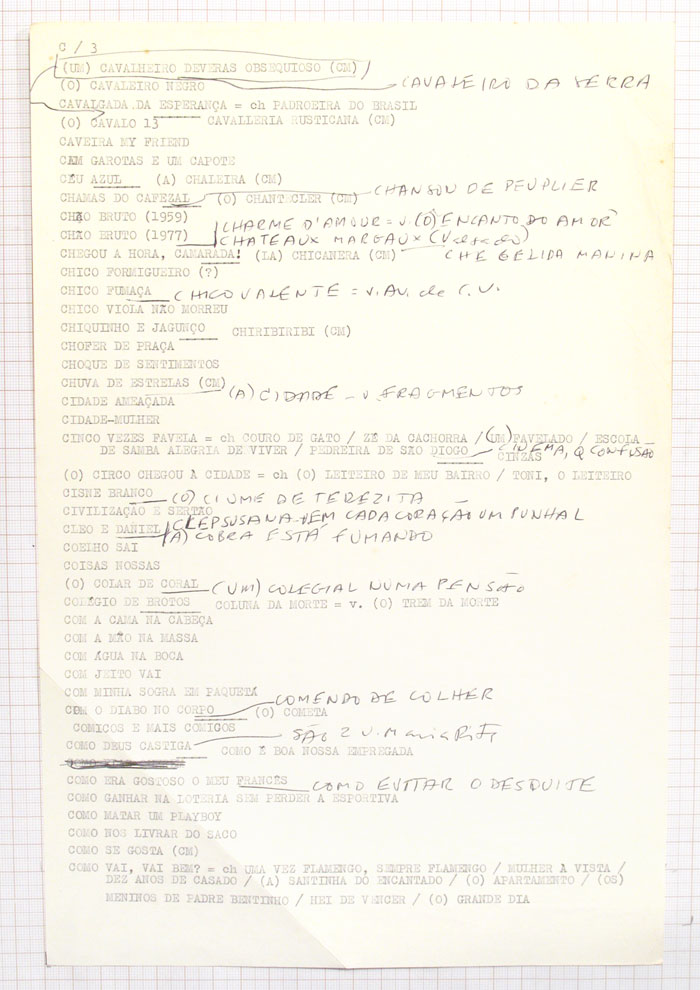 C / 3
(UM) CAVALHEIRO DEVERAS OBSEQUIOSO (CM)
(O) CAVALEIRO NEGRO CAVALEIRO DA SERRA
CAVALGADA DA ESPERANÇA = ch PADROEIRA DO BRASIL
(O) CAVALO 13 CAVALLERIA RUSTICANA (CM)
CAVEIRA MY FRIEND
CEM GAROTAS E UM CAPOTE
CÉU AZUL (A) CHALEIRA (CM)
CHANSON DE PEUPLIER
CHAMAS DO CAFEZAL (O) CHANTECLER (CM)
CHÃO BRUTO (1959) CHARME D'AMOUR = v. (O) ENCANTO DO AMOR
CHÃO BRUTO (1977) CHATEAUX MARGAUX
CHEGOU A HORA, CAMARADA! (LA) CHICANERA (CM) CHE GELIDA MANINA
CHICO FORMIGUEIRO (?)
CHICO FUMAÇA CHICO VALENTE = v. Av. de C. V.
CHICO VIOLA NÃO MORREU
CHIQUINHO E JAGUNÇO CHIRIBIRIBI (CM)
CHOFER DE PRAÇA
CHOQUE DE SENTIMENTOS
CHUVA DE ESTRELAS (CM) (A) CIDADE - v. FRAGMENTOS
CIDADE AMEAÇADA
CIDADE-MULHER
CINCO VEZES FAVELA = ch COURO DE GATO / ZÉ DA CACHORRA / (UM) FAVELADO / ESCOLA
DE SAMBA ALEGRIA DE VIVER / PEDREIRA DE SÃO DIOGO CINEMA, Q CONFUSÃO
CINZAS
(O) CIRCO CHEGOU À CIDADE = ch (O) LEITEIRO DE MEU BAIRRO / TONI, O LEITEIRO
CISNE BRANCO (O) CIUME DE TEREZITA
CIVILIZAÇÃO E SERTÃO
CLEO E DANIEL CLEPSUSANA VEM CADA CORAÇÃO UM PUNHAL
(A) COBRA ESTÁ FUMANDO
COELHO SAI
COISAS NOSSAS
(O) COLAR DE CORAL (UM) COLEGIAL NUMA PENSÃO
COLÉGIO DE BROTOS COLUNA DA MORTE = v. (O) TREM DA MORTE
COM A CAMA NA CABEÇA
COM A MÃO NA MASSA
COM ÁGUA NA BOCA
COM JEITO VAI
COM MINHA SOGRA EM PAQUETÁ
COMENDO DE COLHER
COM O DIABO NO CORPO (O) COMETA
COMICOS E MAIS COMICOS
SÃO 2 v. Maria
COMO DEUS CASTIGA COMO É BOA NOSSA EMPREGADA
COMO ERA GOSTOSO O MEU FRANCÊS COMO EVITAR O DESQUITE
COMO GANHAR NA LOTERIA SEM PERDER A ESPORTIVA
COMO MATAR UM PLAYBOY
COMO NOS LIVRAR DO SACO
COMO SE GOSTA (CM)
COMO VAI, VAI BEM? = ch UMA VEZ FLAMENGO, SEMPRE FLAMENGO / MULHER À VISTA /
DEZ ANOS DE CASADO / (A) SANTINHA DO ENCANTADO / (O) APARTAMENTO / (OS)
MENINOS DE PADRE BENTINHO / HEI DE VENCER / (O) GRANDE DIA